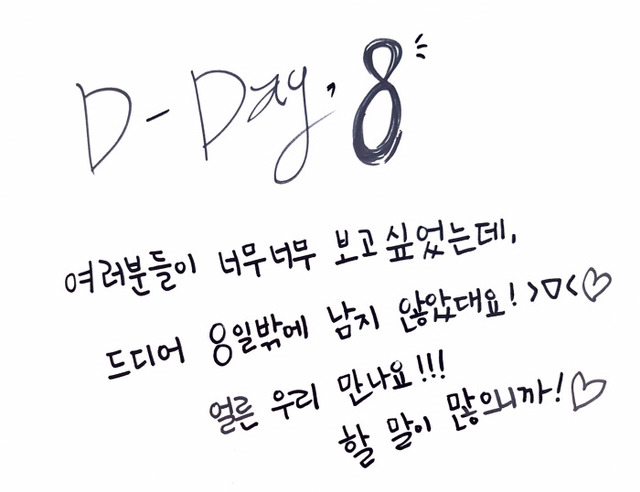 D-Day, 8
여러분들이 너무너무 보고싶었는데,
드디어 8일밖에 남지 않았대요! >▽<♡
얼른 우리 만나요!!!
할 말이 많으니까!♡